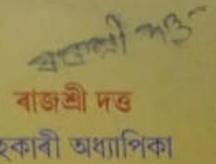 ৰাজশ্ৰী দত্ত
ৰাজশ্ৰী দত্ত
হকাৰী অধ্যাপিকা